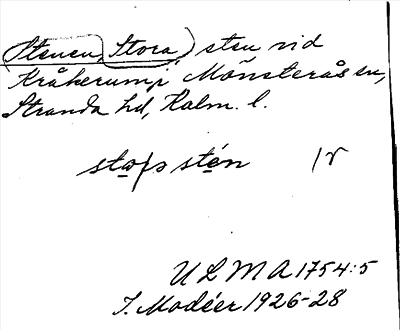 (Stenen, Stora,) sten vid
Kråkerum i Mönsterås sn,
Stranda hd, Kalm. l.
stén
ULMA 1754:5
I. Modéer 1926-28